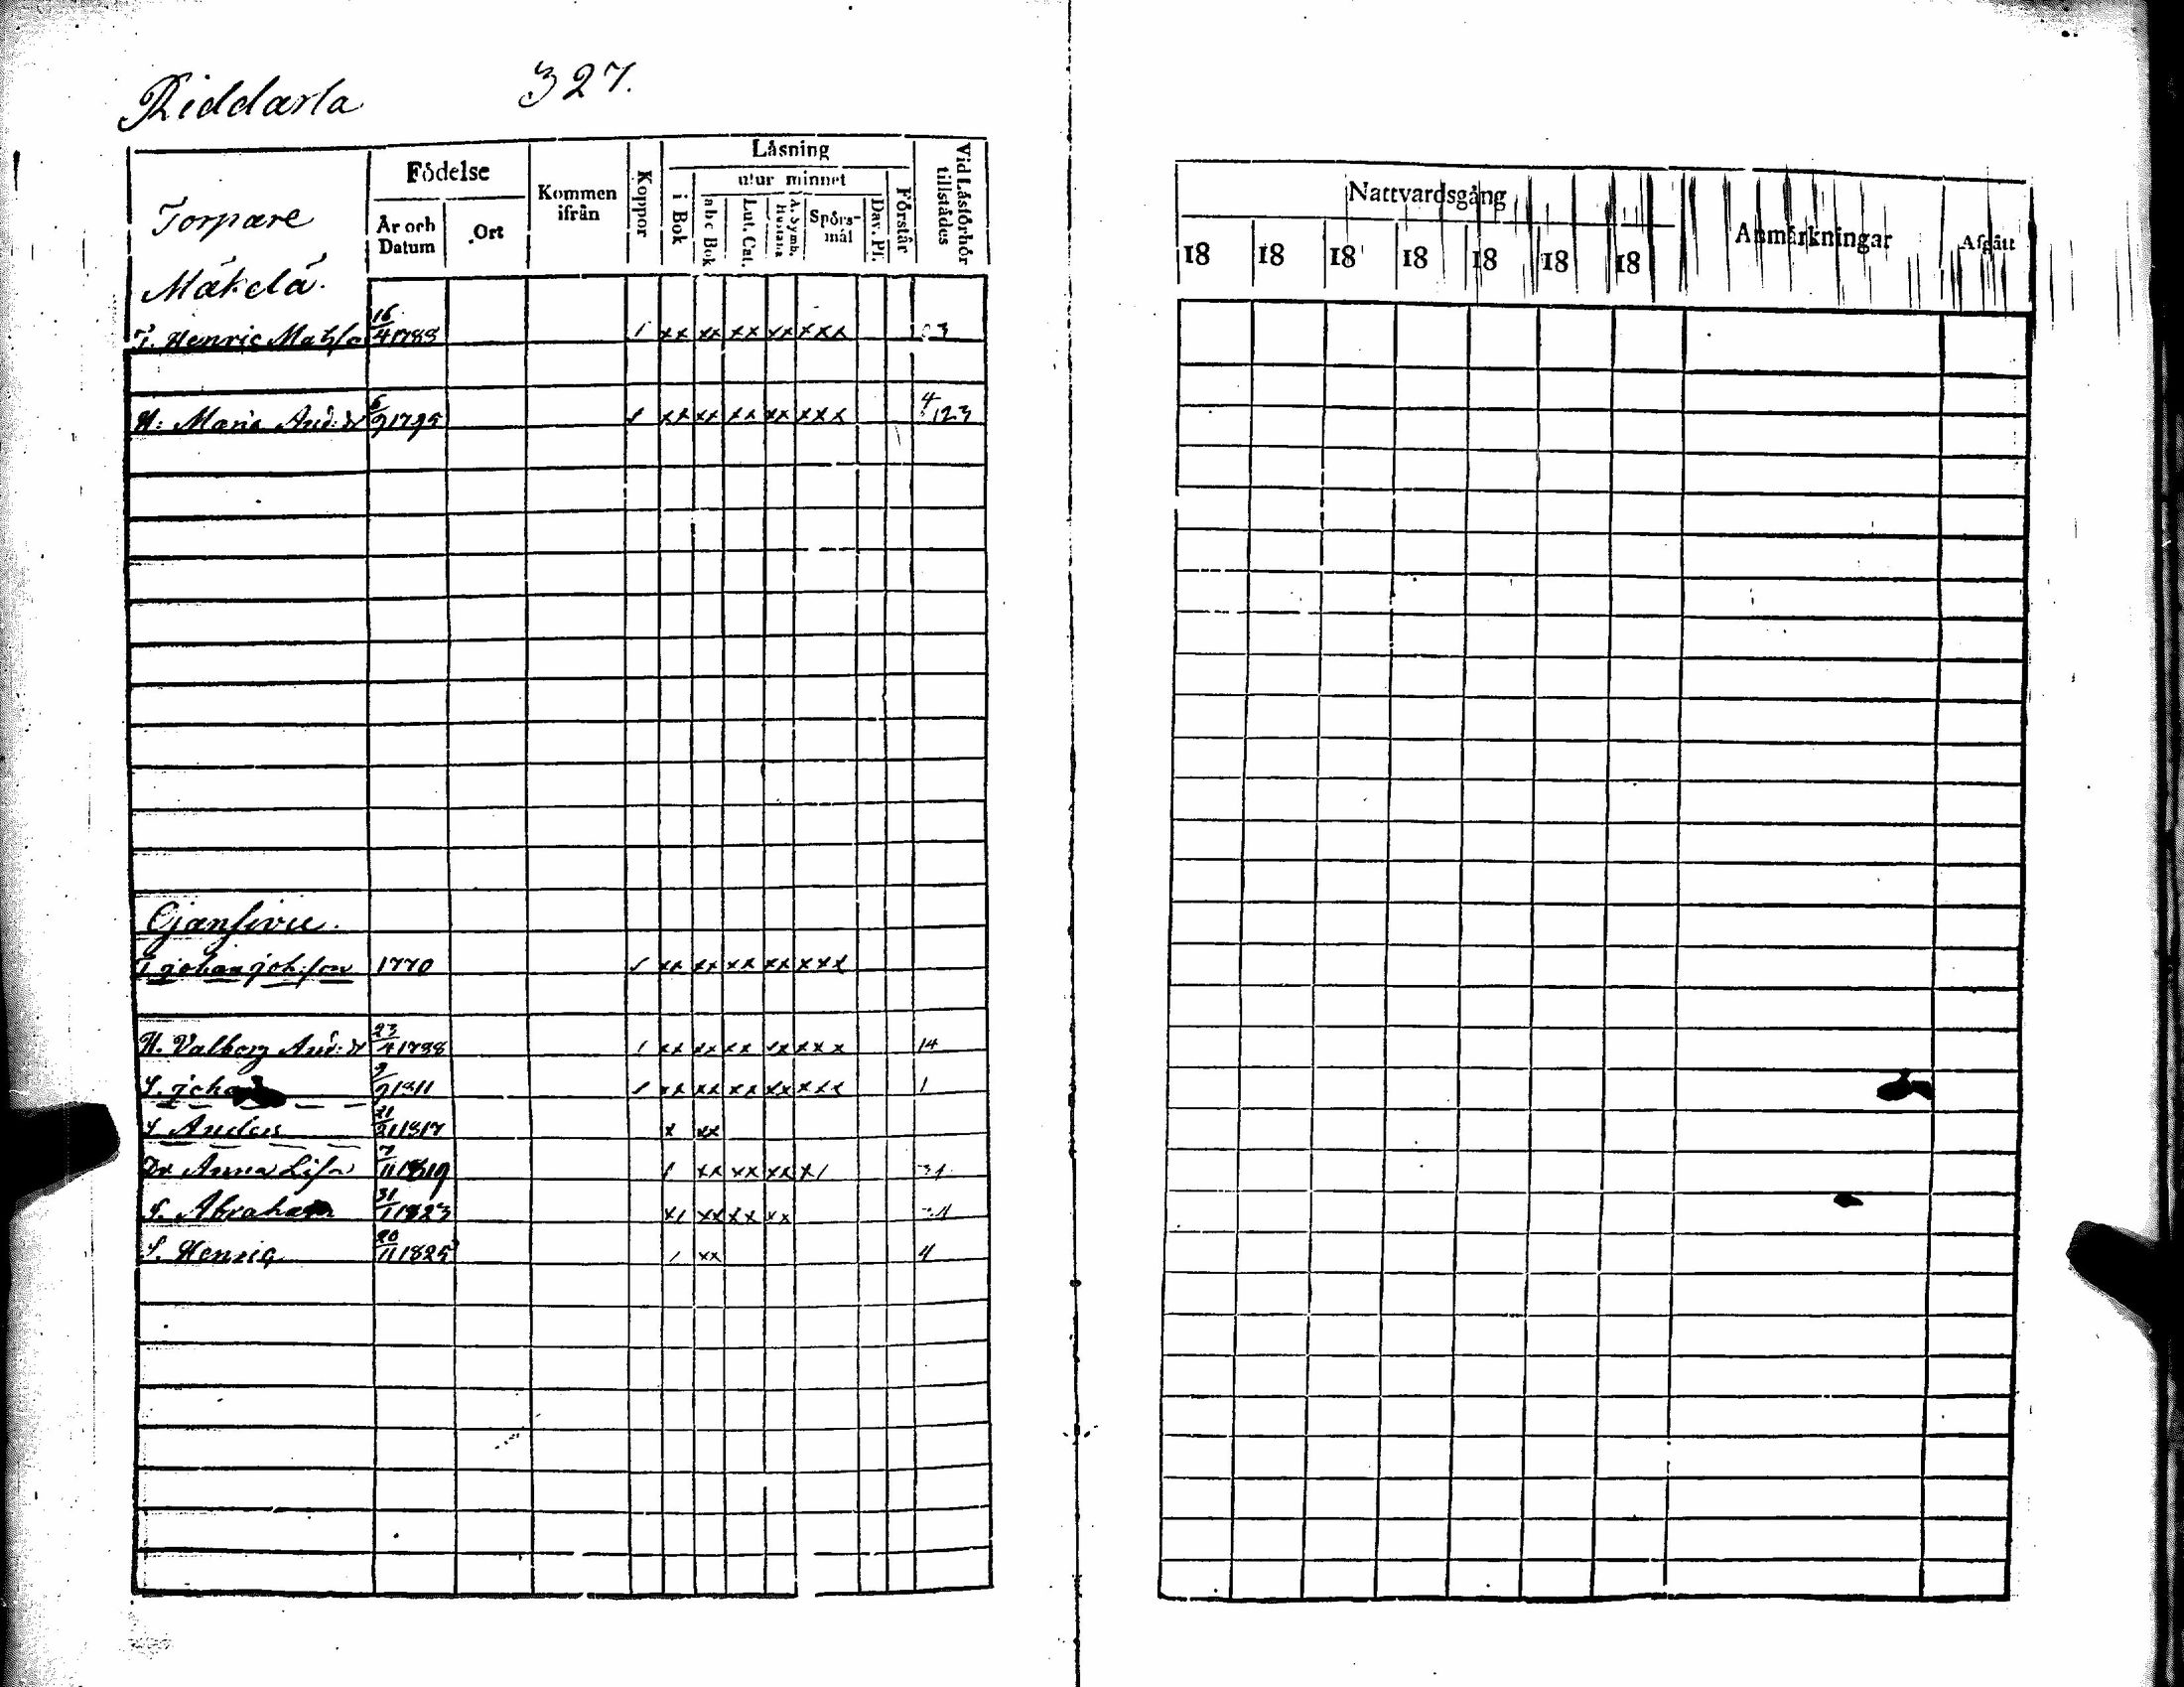 Riddarla 327.
Födelse
Kommen ifrån
Koppor
Läsning
Vid Läsförhör tillstädes
År och Datum
Ort
i Bok
utur minnet
abc Bok
Lut. Cat.
A. Symb. Hustafla
Spörsmål
Dav. Ps.
Förstår
Torpare
Mäkelä.
T. Henric Mats 16/4 1788 1 xx xx xx xx xxx 3
H: Maria And: dr 6/9 1795 1 xx xx xx xx xxx 4 123
T johan joh:son 1770 1 xx xx xx xx xxx
H. Valborg And: dr 23/4 1788 1 xx xx xx xx xxx 14
S. joha 9/9 1811 1 xx xx xx xx xxx 1
S Anders 21/2 1817 x xx
Dr Anna Lisa 7/11 1819 1 xx xx xx x1
S. Abraham 31/1 1823 x1 xx xx xx
S. Henric 20/11 1825 1 xx 4
Nattvardsgång
Anmärkningar
Afgått
18 18 18 18 18 18 18